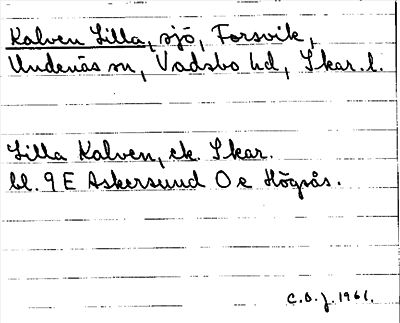 Kalven Lilla, sjö, Forsvik,
Undenäs sn, Vadsbo hd, Skar. l.
Lilla Kalven, ek. Skar.
bl. 9 E Askersund O e Högsås.
C.O.J. 1961.